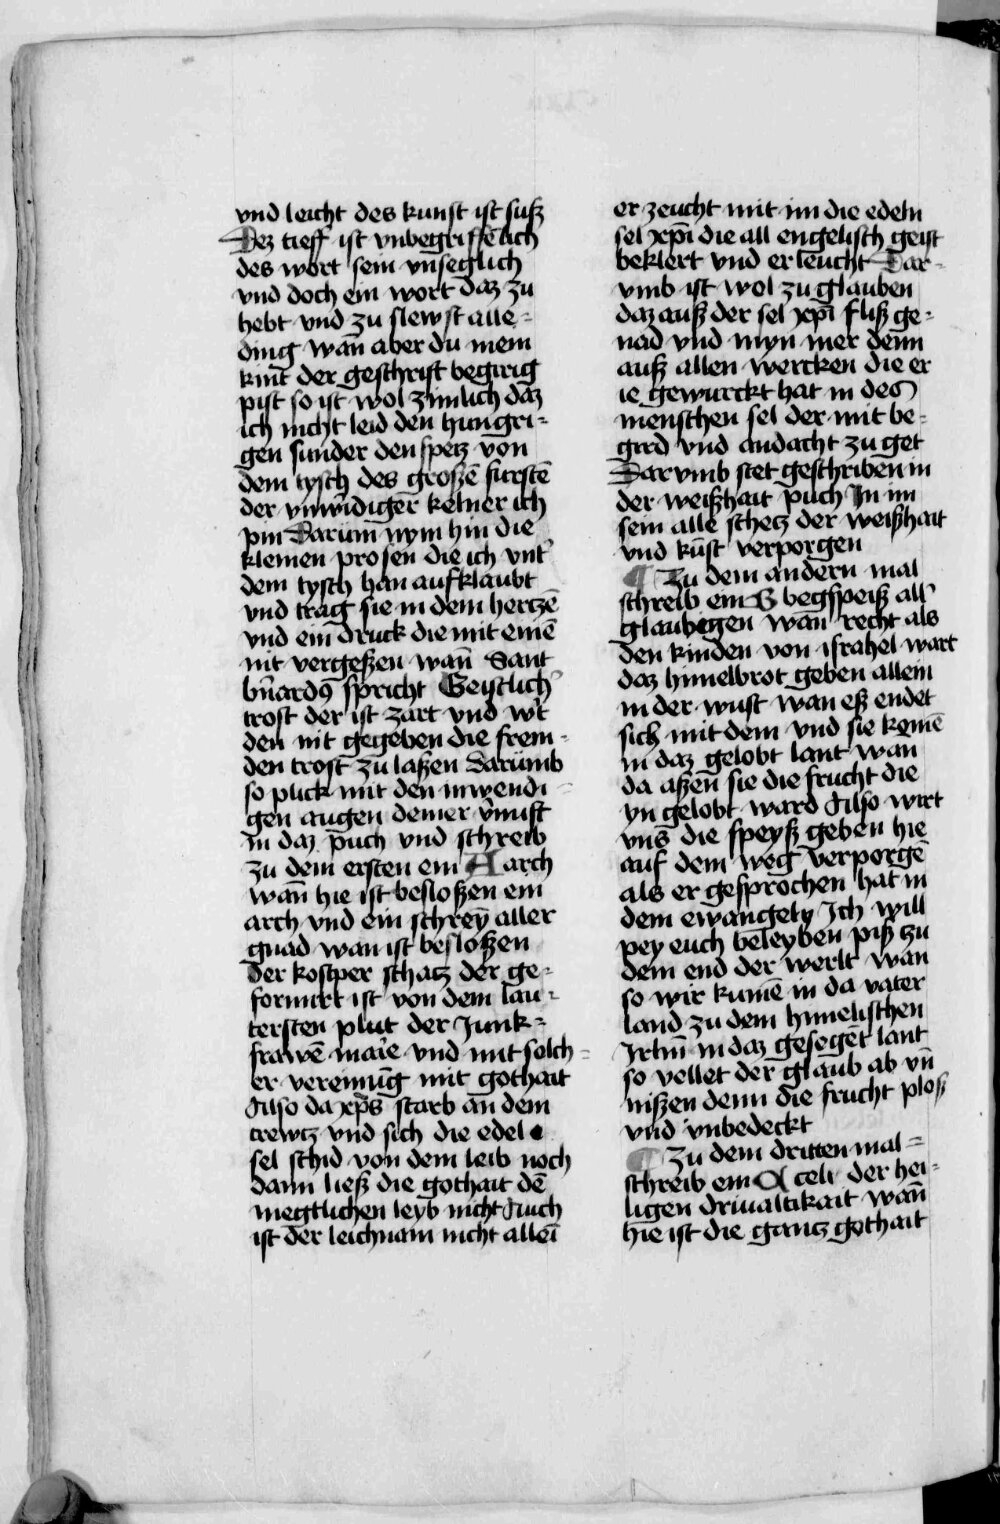 vnd leicht des kunst ist susz
Dez tieff ist vnbegriffēlich
des wort sein vn̄seglich
vnd doch ein wort daz zu
hebt vnd zu slewst alle=
ding wan̄ aber du mein
kint der geschrift begirig
pist so ist wol zimlich daz
ich nicht leid den hungri=
gen sunder den speiz von
dem tysch des groszē furstē
der vnwirdiger kelner ich
pin Darum̄ nym hin die
kleinen prosen die ich vnt'
dem tysch han aufklaubt
vnd trag sie in dem hertzē
vnd ein druck die mit einē
nit vergeszen wan̄ Sant
bn̄ardꝰ spricht Geistlich'
trost der ist zart vnd w't
den nit gegeben die frem=
den trost zu laszen Darumb
so plick mit den inwendi=
gen augen deiner v'nuft
in daz puch vnd schreib
zu dem ersten ein A arch
wan̄ hie ist besloszen ein
arch vnd ein schreÿ aller
gnad wan ist besloszen
der kostper schatz der ge=
formirt ist von dem lau=
tersten plut der Junk=
frawē mar'e vnd mit solch=
er vereinūg mit gothait
Also da xp̄s starb an dem
crewtz vnd sich die edel
sel schid von dem leib noch
dann liesz die gothait dē
megtlichen leyb nicht Auch
ist der leichnam nicht alleī
er zeucht mit im die edeln
sel xp̄i die all engelisch geist
beklert vnd erleucht Dar=
vmb ist wol zu glauben
daz ausz der sel xp̄i flisz ge=
nad vnd myn mer denn
ausz allen wercken die er
ie gewurckt hat in des
menschen sel der mit be=
gird vnd andacht zu get
Darvmb stet geschriben in
der weiszhait puch In im
sein alle schetz der weiszhait
vnd kūst verporgen
¶ Zu dem andern mal
schreib ein B begspeisz all'
glaubigen wan̄ recht als
den kinden von israhel wart
daz himelbrot geben allein
in der wust wan esz endet
sich mit dem vnd sie komē
in daz gelobt lant wan
da aszen̄ sie die frucht die
yn gelobt ward Also wirt
vns die speysz geben hie
auf dem weg verporgē
als er gesprochen hat in
dem ewangely Ich will
pey euch beleyben pisz zu
dem end der werlt wan
so wir kumē in da vater
land zu dem himelischen
Irlm̄ in daz gesegēt lant
so vellet der glaub ab vn̄
niszen denn die frucht plosz
vnd vnbedeckt
¶ Zu dem dritten mal=
schreib ein C celi der hei=
ligen driualtikait wan̄
hie ist die gantz gothait